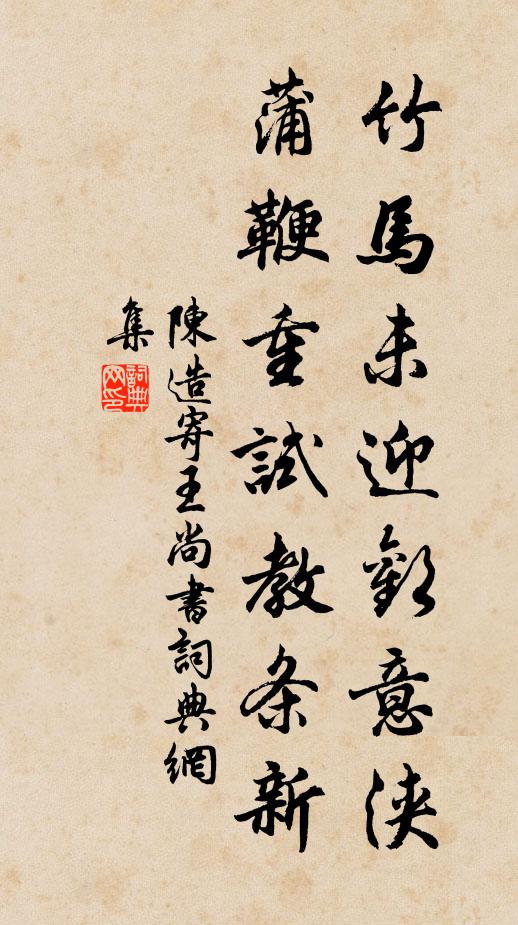 竹馬未迎歡意浹
蒲鞭重試教条新
陳造寄王尚書詞典網
集
詞典
网印